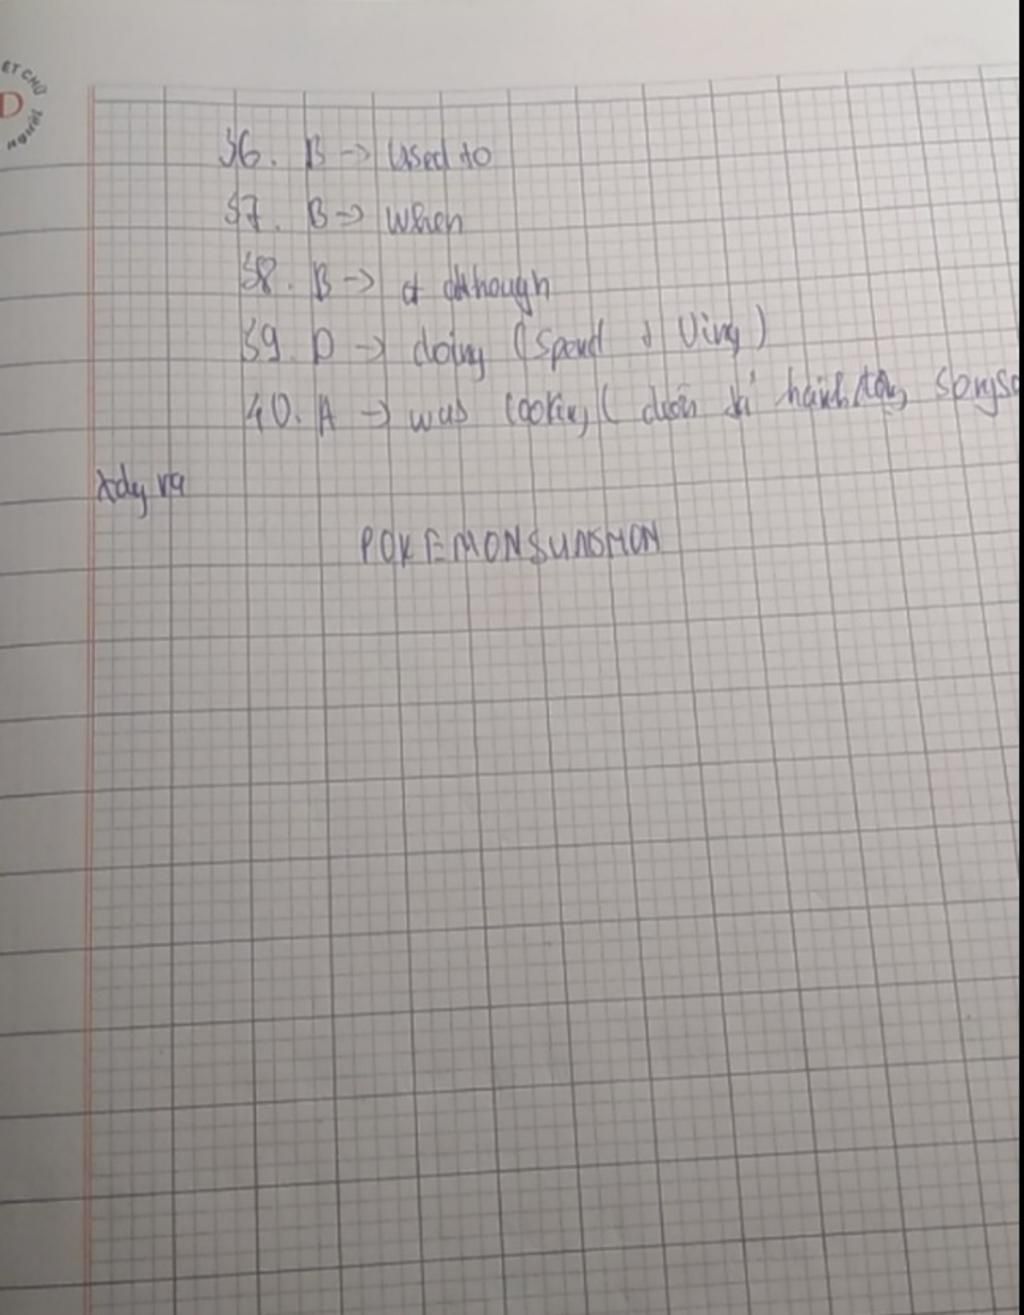 ẾT CHỮ
D
NGƯỜI
36. B -> Used to
37. B -> when
38. B -> although
39. D -> doing (Spend + Ving)
40. A -> was cooking ( diễn tả hành động songso
xảy ra
POKEMONSUNSMON